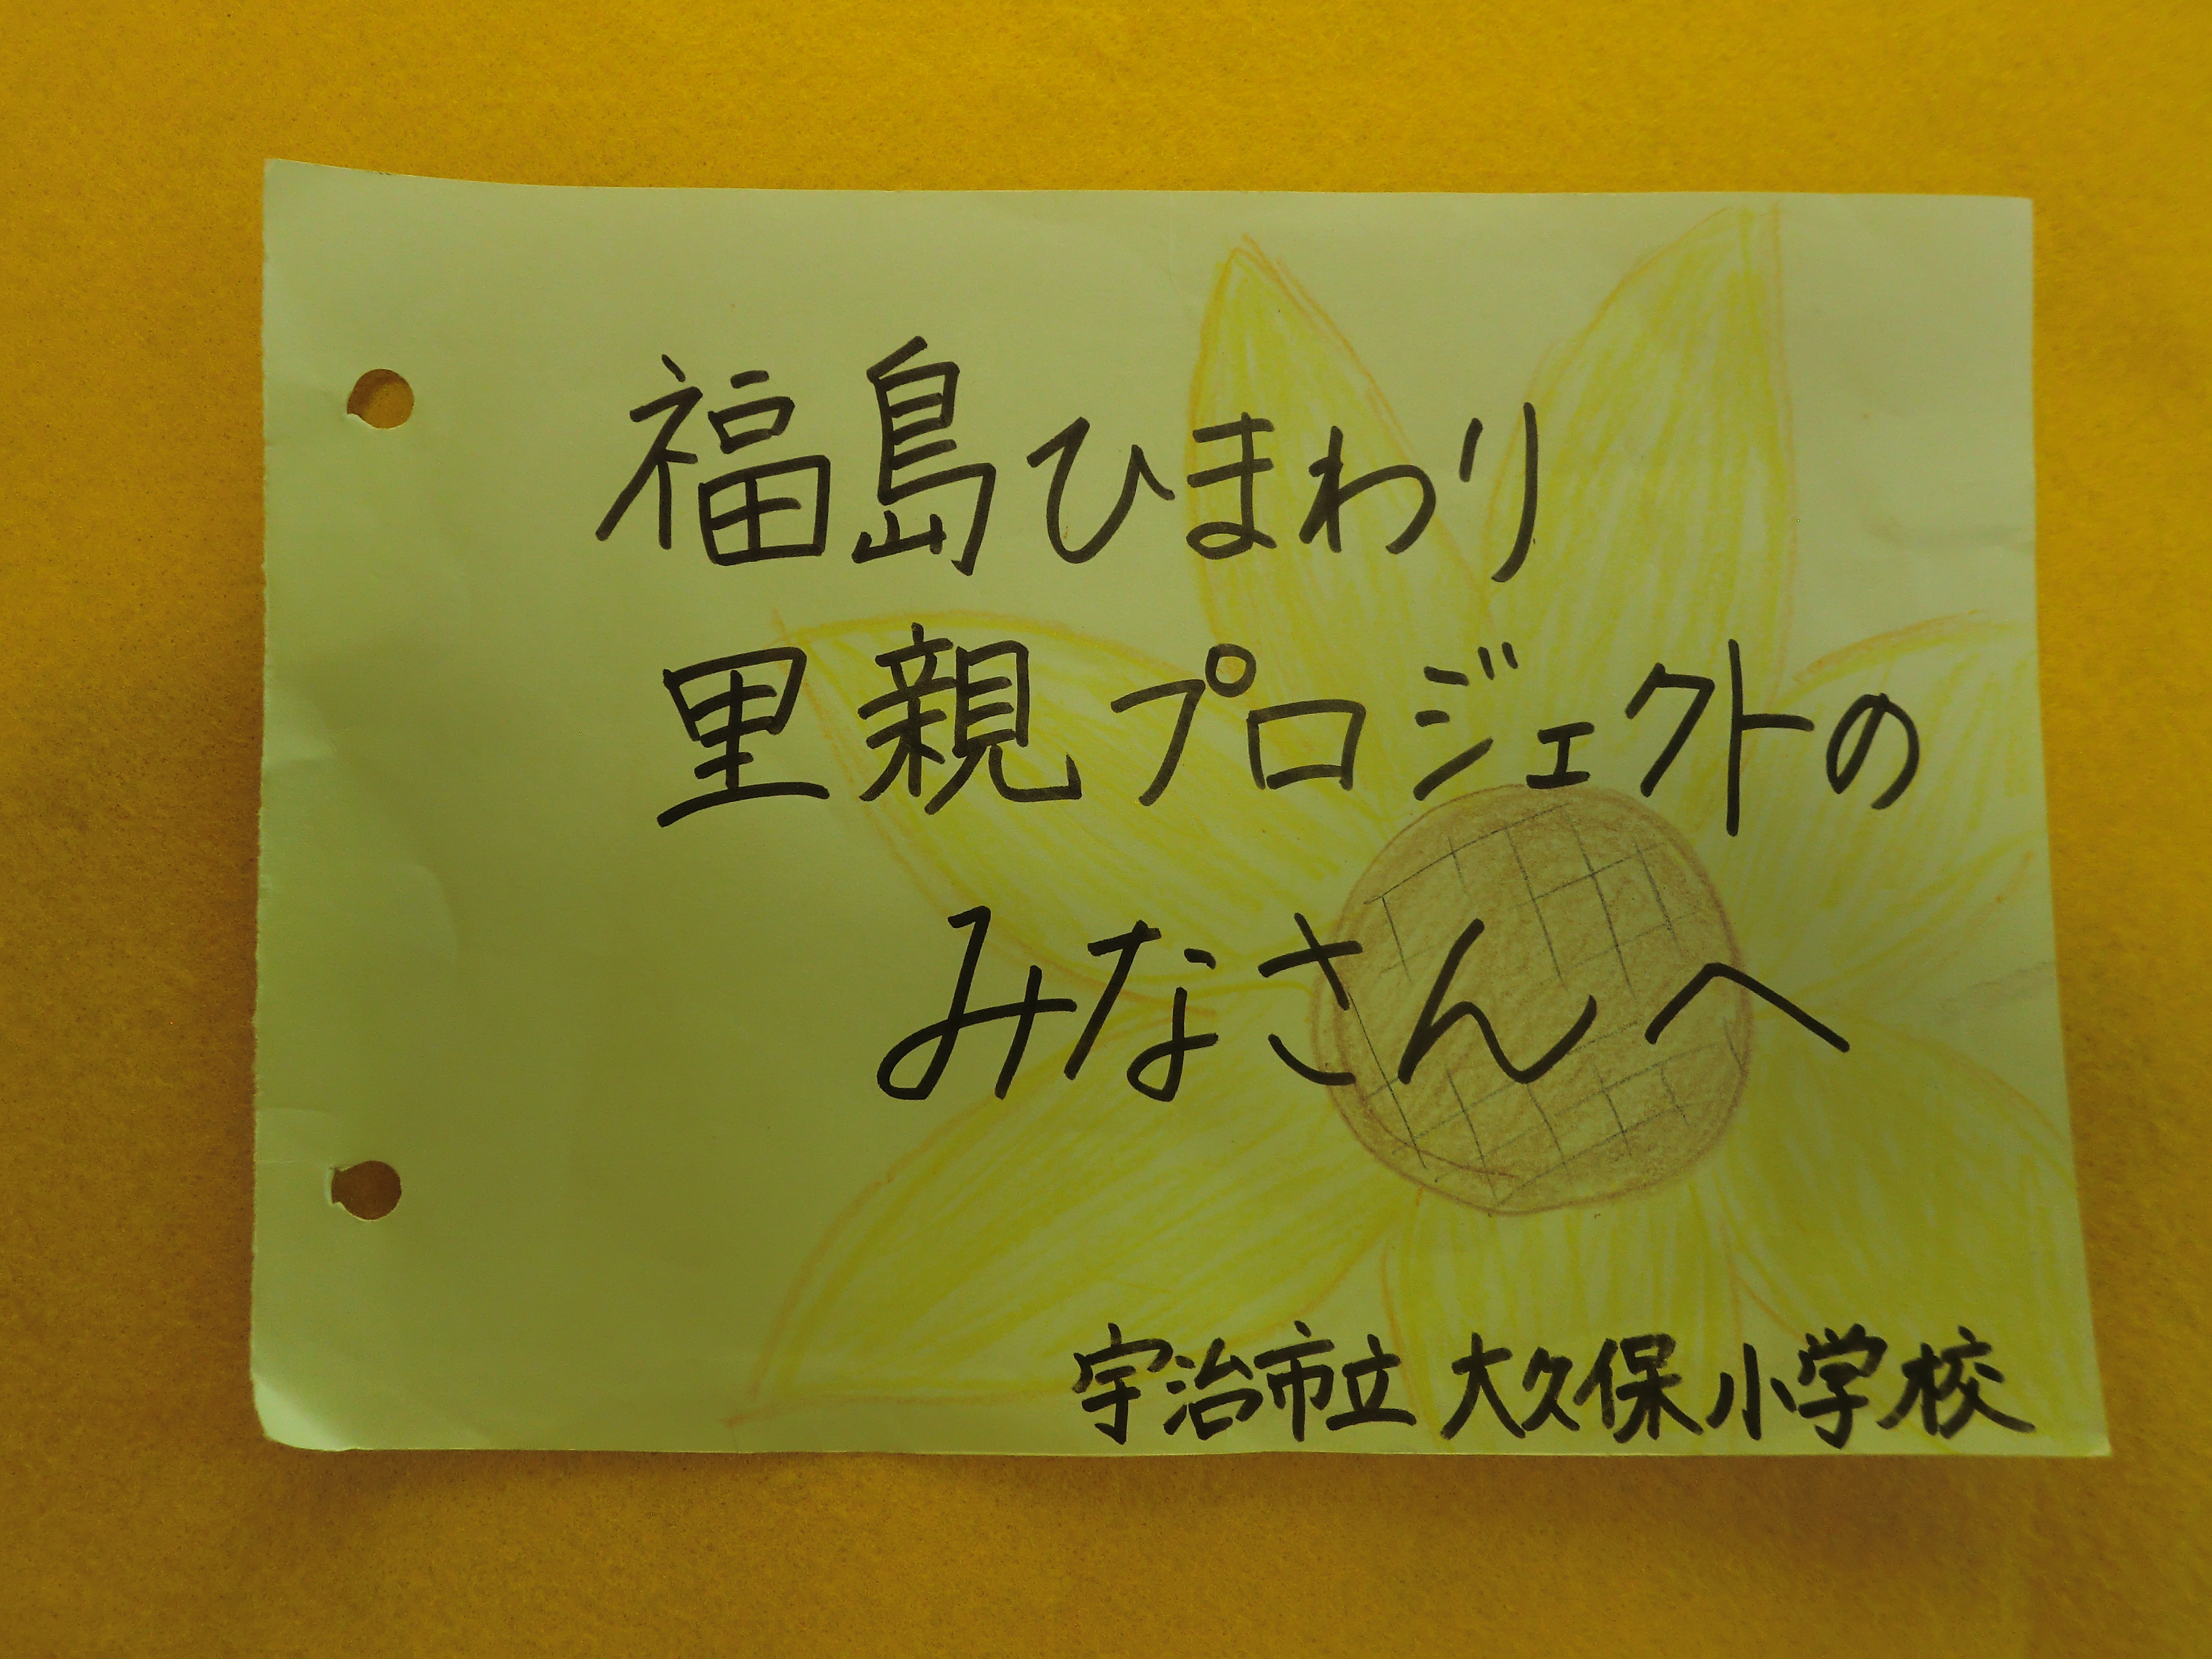 福島ひまわり
里親プロジェクトの
みなさんへ
宇治市立 大久保小学校